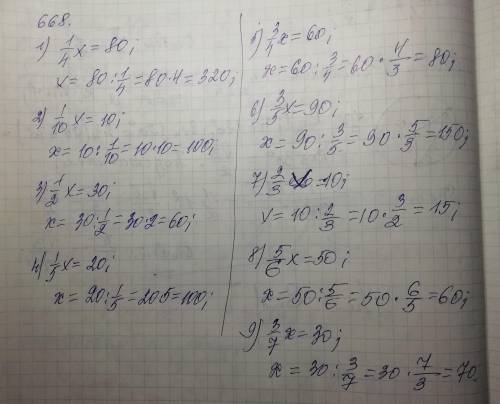 668.
1) 1/4 x = 80;
x = 80 : 1/4 = 80 · 4 = 320;
2) 1/10 x = 10;
x = 10 : 1/10 = 10 · 10 = 100;
3) 1/2 x = 30;
x = 30 : 1/2 = 30 · 2 = 60;
4) 1/5 x = 20;
x = 20 : 1/5 = 20 5 = 100;
5) 3/4 x = 60;
x = 60 : 3/4 = 60 · 4/3 = 80;
6) 3/5 x = 90;
x = 90 : 3/5 = 90 · 5/3 = 150;
7) 2/3 x = 10;
x = 10 : 2/3 = 10 · 3/2 = 15;
8) 5/6 x = 50;
x = 50 : 5/6 = 50 · 6/5 = 60;
9) 3/7 x = 30;
x = 30 : 3/7 = 30 · 7/3 = 70.